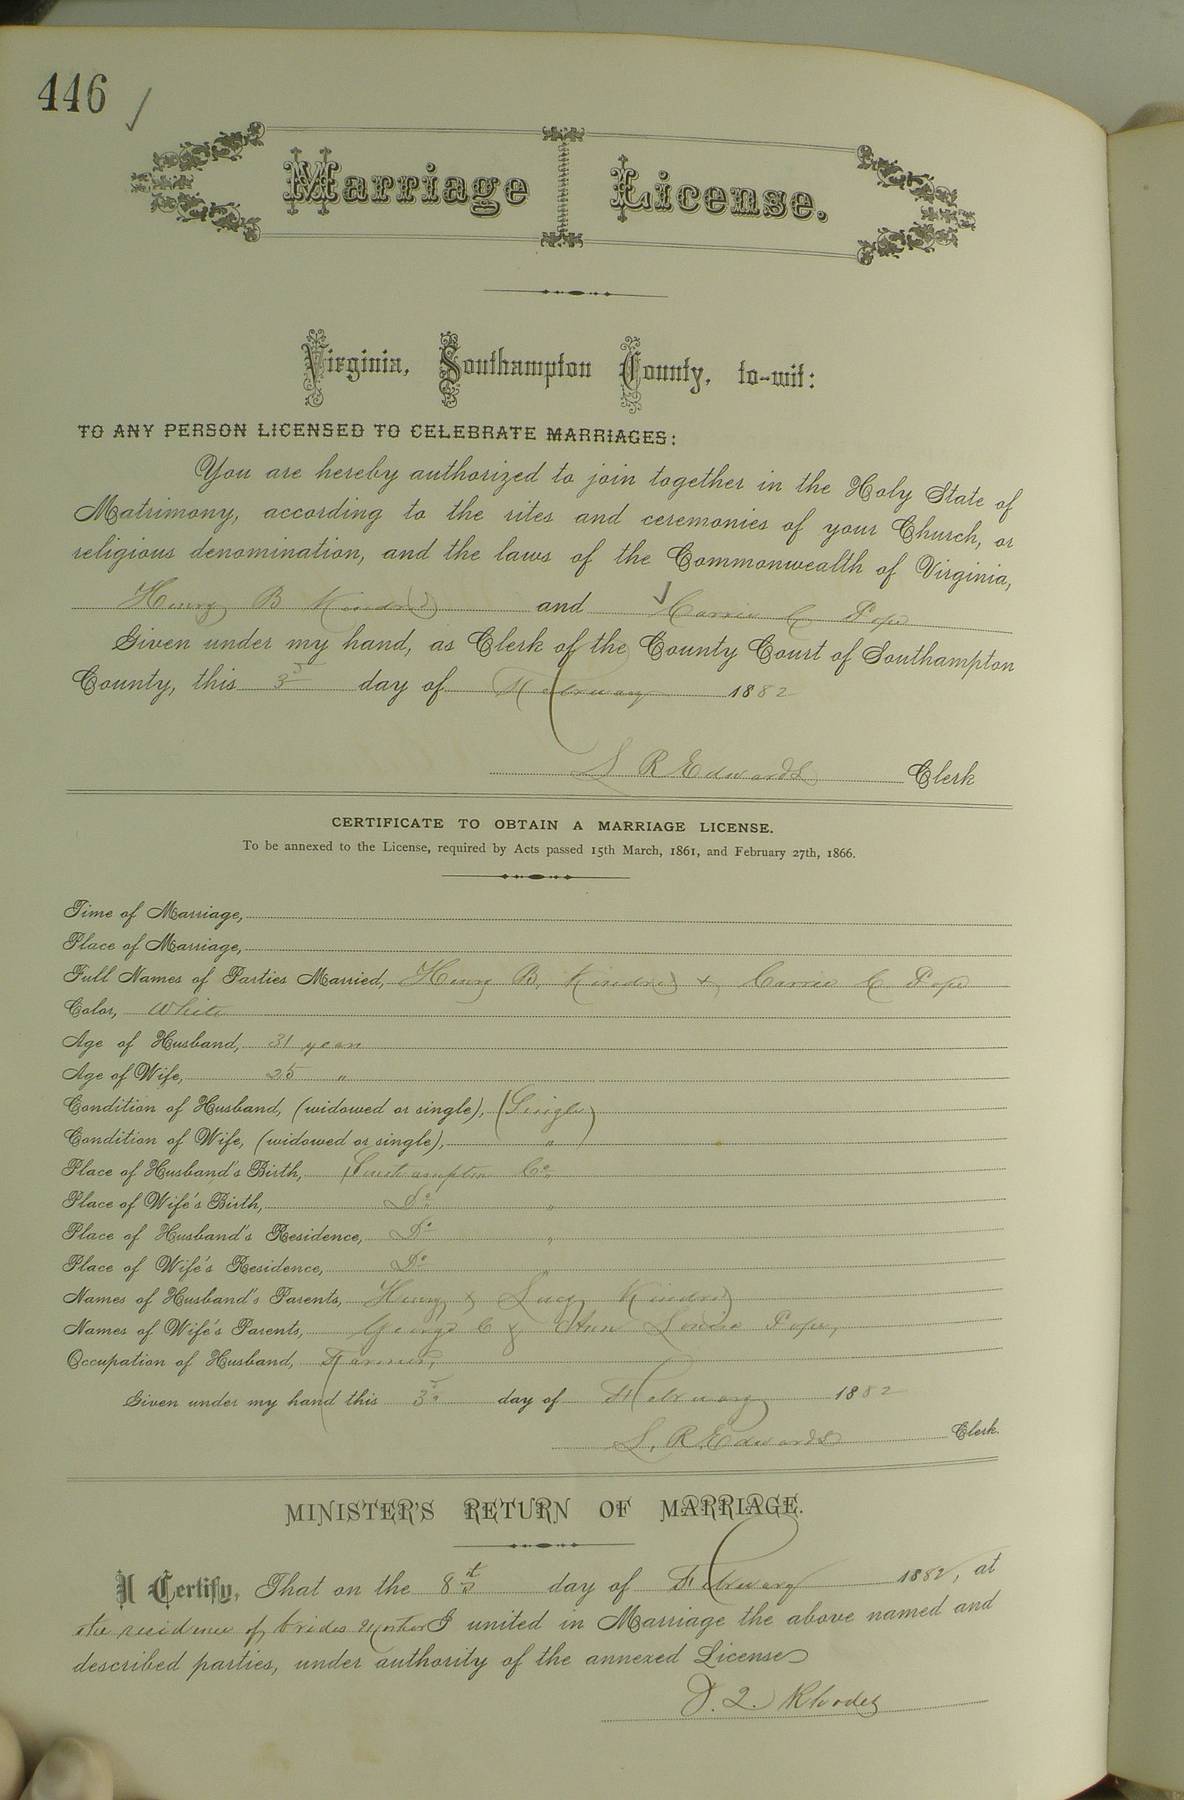 446
Marriage License.
Virginia, Southampton County, to-wit:
TO ANY PERSON LICENSED TO CELEBRATE MARRIAGES:
You are hereby authorized to join together in the Holy State of
Matrimony, according to the rites and ceremonies of your Church, or
religious denomination, and the laws of the Commonwealth of Virginia,
Henry B Kindred and Carrie C Pope
Given under my hand, as Clerk of the County Court of Southampton
County, this 3 day of February 1882
L R Edwards Clerk
CERTIFICATE TO OBTAIN A MARRIAGE LICENSE.
To be annexed to the License, required by Acts passed 15th March, 1861, and February 27th, 1866.
Time of Marriage,
Place of Marriage,
Full Names of Parties Married, Henry B. Kindred & Carrie C Pope
Color, White
Age of Husband, 31 years
Age of Wife, 25 "
Condition of Husband, (widowed or single), Single
Condition of Wife, (widowed or single), "
Place of Husband's Birth, Southampton Co.
Place of Wife's Birth, Do "
Place of Husband's Residence, Do "
Place of Wife's Residence, Do
Names of Husband's Parents, Henry & Lucy Kindred
Names of Wife's Parents, George C & Ann Louisa Pope,
Occupation of Husband, Farmer,
Given under my hand this 3 day of February 1882
L. R. Edwards Clerk.
MINISTER'S RETURN OF MARRIAGE.
I Certify, That on the 8th day of February 1882, at
the residence of brides Mother I united in Marriage the above named and
described parties, under authority of the annexed License
Rhodes